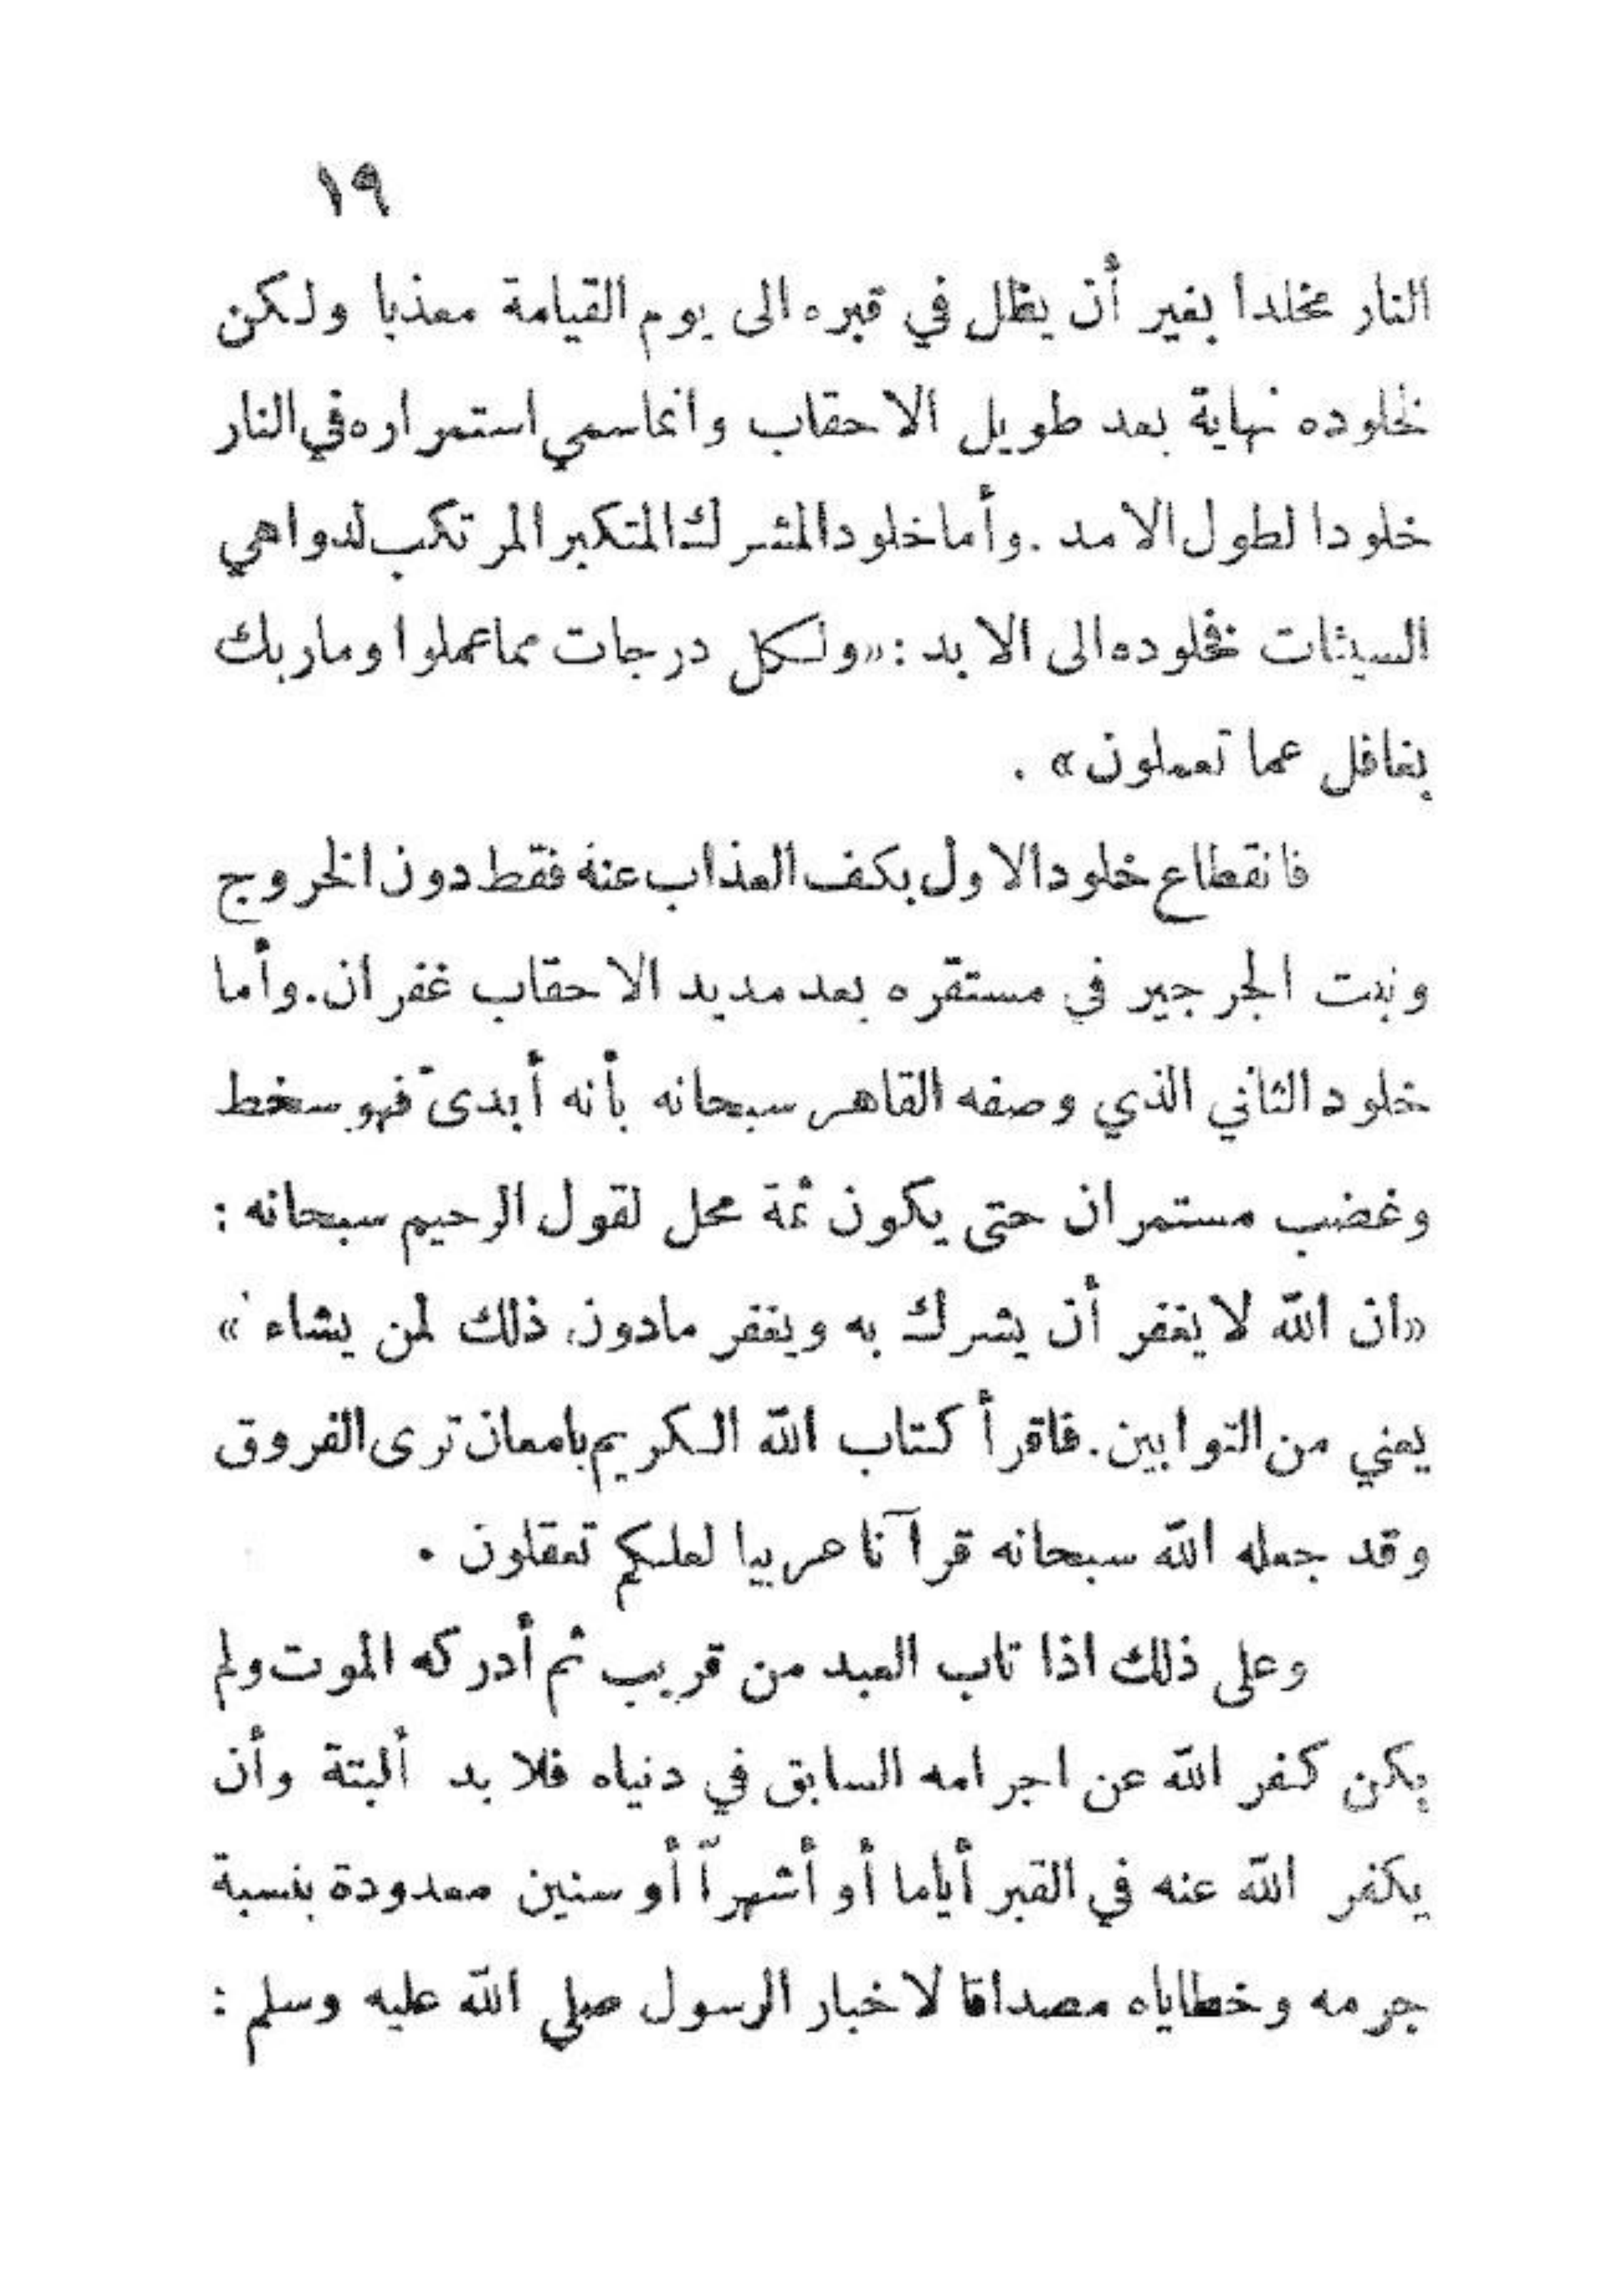 ١٩
النار مخلدا بغير أن يظل في قبره الى يوم القيامة معذبا ولكن
لخلوده نهاية بعد طويل الاحقاب وانما سمي استمراره في النار
خلودا لطول الامد . وأما خلود المشرك المتكبر المرتكب لدواهي
السيئات فخلوده الى الابد : «ولكل درجات مما عملوا وما ربك
بغافل عما تعملون» .
فانقطاع خلود الاول بكف العذاب عنه فقط دون الخروج
ونبت الجرجير في مستقره بعد مديد الاحقاب غفران . وأما
خلود الثاني الذي وصفه القاهر سبحانه بأنه أبدىّ فهو سخط
وغضب مستمران حتى يكون ثمة محل لقول الرحيم سبحانه :
«ان الله لا يغفر أن يشرك به ويغفر مادون ذلك لمن يشاء»
يعني من التوابين . فاقرأ كتاب الله الكريم بامعان ترى الفروق
وقد جعله الله سبحانه قرآنا عربيا لعلكم تعقلون .
وعلى ذلك اذا تاب العبد من قريب ثم أدركه الموت ولم
يكن كفر الله عن اجرامه السابق في دنياه فلا بد ألبتة وأن
يكفر الله عنه في القبر أياما أو أشهراً أو سنين معدودة بنسبة
جرمه وخطاياه مصداقا لاخبار الرسول صلى الله عليه وسلم :